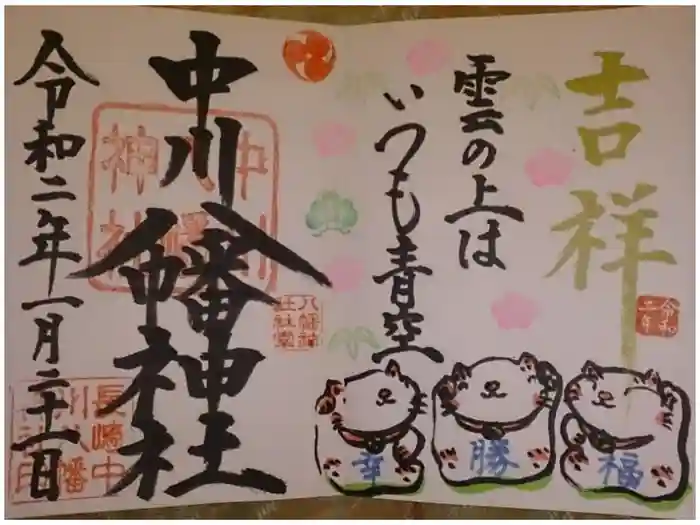 吉祥
令和
二年
雲の上は
いつも青空
福
勝
幸
中川八幡神社
中川
八幡
神社
八幡神
社社堂
令和二年一月二十一日
長崎中
川八幡